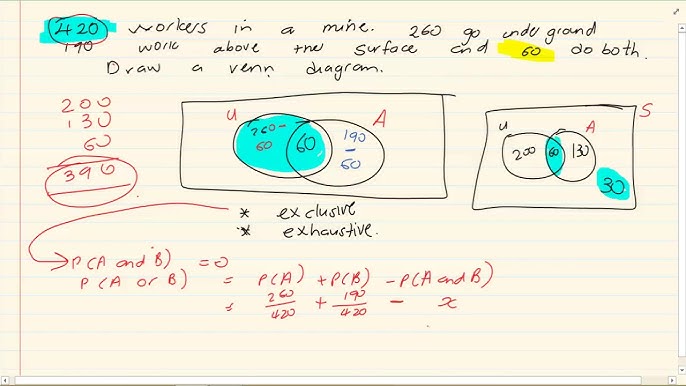 420 workers in a mine. 260 go under ground
190 work above the surface and 60 do both.
Draw a venn diagram.
200
130
60
390
U
A
260 -
60
60
190
-
60
S
U
A
200
60
130
30
* exclusive
* exhaustive.
P(A and B) = 0
P(A or B) = P(A) + P(B) - P(A and B)
= 260/420 + 190/420 - x